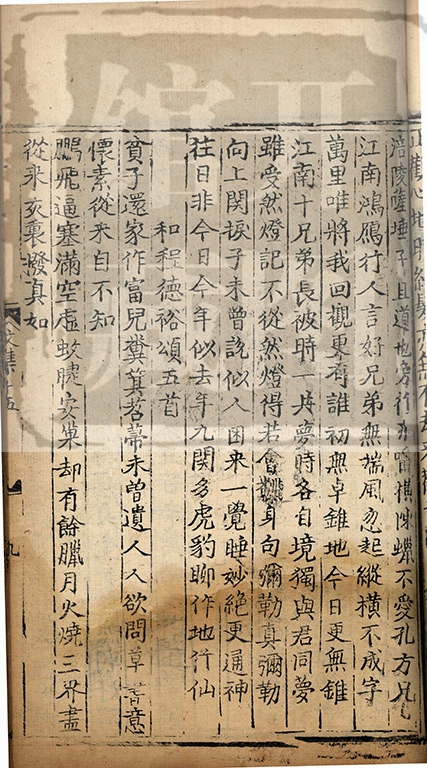 涪陵薩埵子且道地旁行橫陳蠟不愛孔方兄
江南鴻鴈行人言好兄弟無端風忽起縱橫不成字
萬里唯將我回觀更有誰初無卓錐地今日更無錐
江南十兄弟長被時一共夢時各自境獨與君同夢
雖受然燈記不從然燈得若會身句彌勒真彌勒
向上關捩子未曾說似人困來一覺睡妙絕更通神
往日非今日今年似去年九關多虎豹聊作地行仙
和程德裕頌五首
貧子還家作富兒糞箕苕帚未曾遺人人欲問草書意
懷素從來自不知
鵬飛逼塞滿空虛蚊睫安巢却有餘臘月火燒三界盡
從來亥裏撥真如
集十五
九